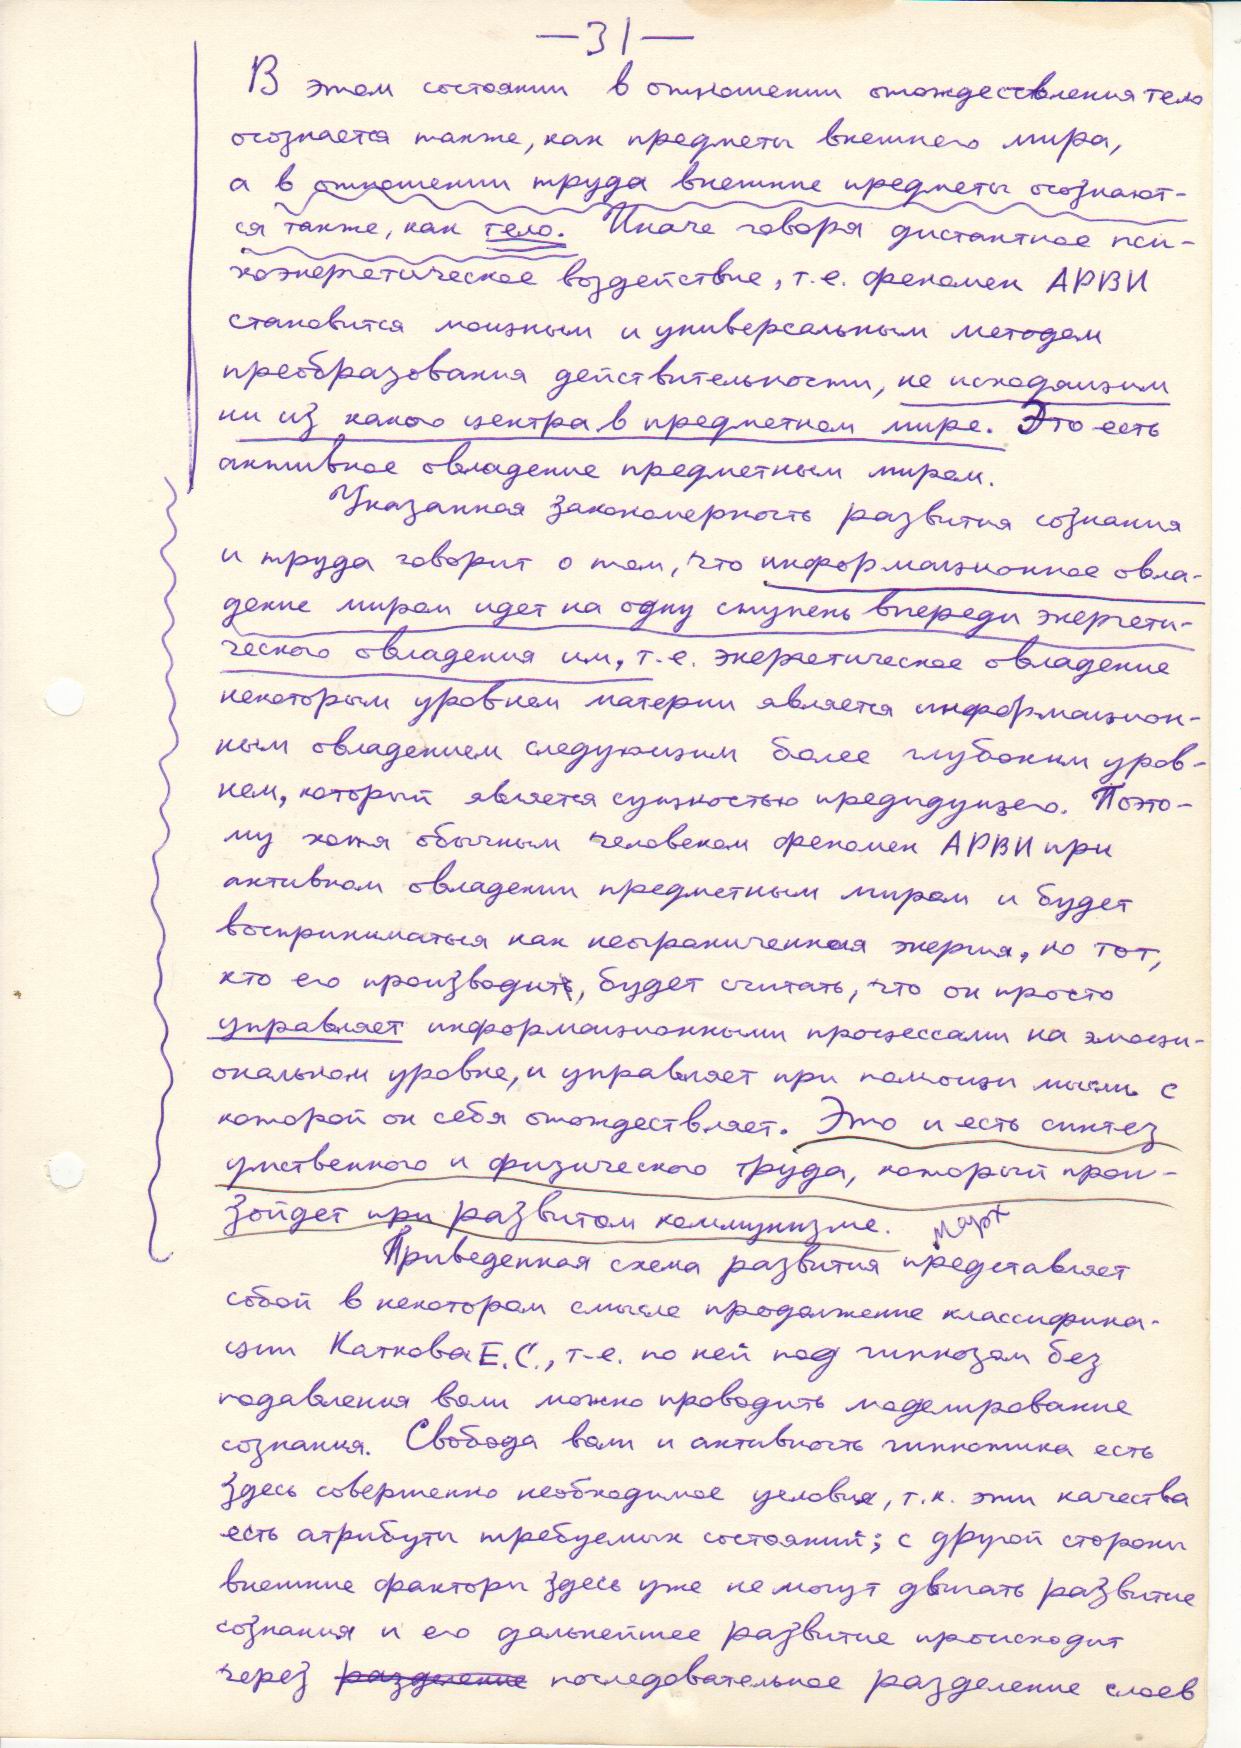 —31—
В этом состоянии в отношении отождествления тело
осознается также, как предметы внешнего мира,
а в отношении труда внешние предметы осознают-
ся также, как тело. Иначе говоря дистантное пси-
хоэнергетическое воздействие, т.е. феномен АРВИ
становится мощным и универсальным методом
преобразования действительности, не исходящим
ни из какого центра в предметном мире. Это есть
активное овладение предметным миром.
Указанная закономерность развития сознания
и труда говорит о том, что информационное овла-
дение миром идет на одну ступень впереди энергети-
ческого овладения им, т.е. энергетическое овладение
некоторым уровнем материи является информацион-
ным овладением следующим более глубоким уров-
нем, который является сущностью предыдущего. Поэто-
му хотя обычным человеком феномен АРВИ при
активном овладении предметным миром и будет
восприниматься как неограниченная энергия, но тот,
кто его производит, будет считать, что он просто
управляет информационными процессами на эмоци-
ональном уровне, и управляет при помощи мысли с
которой он себя отождествляет. Это и есть синтез
умственного и физического труда, который прои-
зойдет при развитом коммунизме.
Маркс
Приведенная схема развития представляет
собой в некотором смысле продолжение классифика-
ции Каткова Е.С., т.е. по ней под гипнозом без
подавления воли можно проводить моделирование
сознания. Свобода воли и активность гипнотика есть
здесь совершенно необходимое условие, т.к. эти качества
есть атрибуты требуемых состояний; с другой стороны
внешние факторы здесь уже не могут двигать развитие
сознания и его дальнейшее развитие происходит
через разделение последовательное разделение слоев